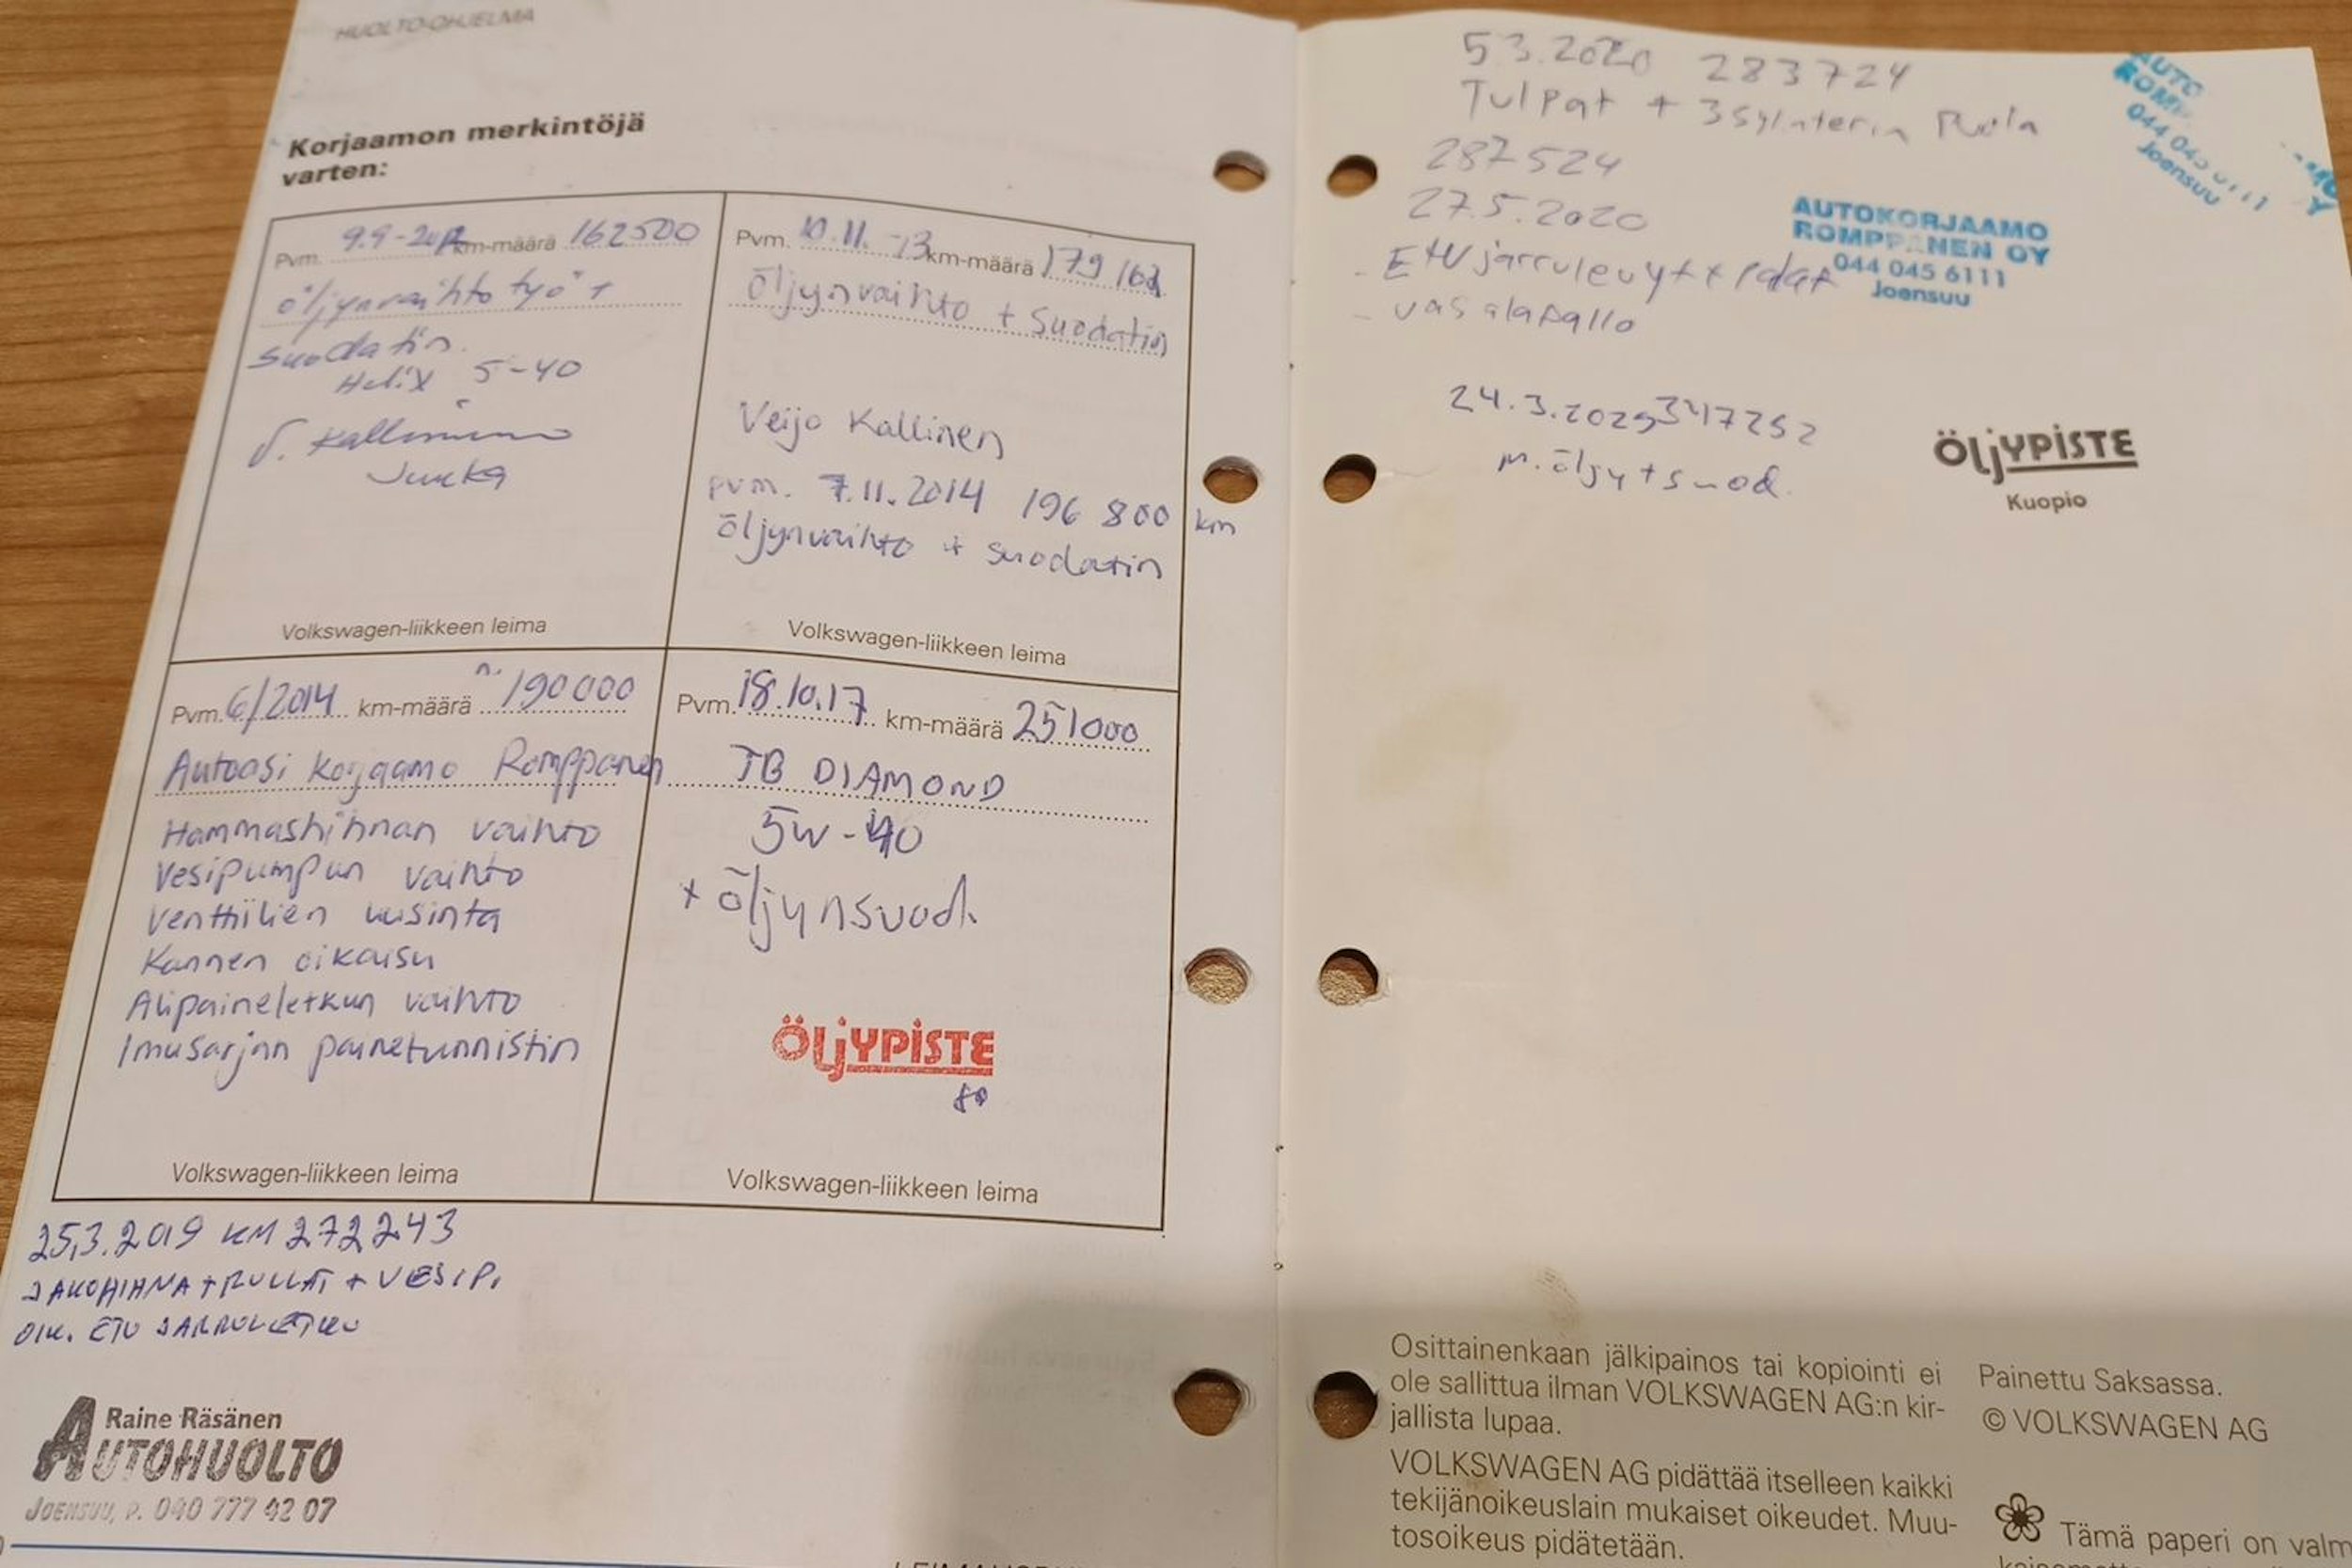 HUOLTO-OHJELMA
Korjaamon merkintöjä
varten:
Pvm. 9.9-2012 km-määrä 162500
öljynvaihto työ +
suodatin.
Helix 5-40
V. Kallinen
Juuka
Volkswagen-liikkeen leima
Pvm. 10.11.-13 km-määrä 179 162
Öljynvaihto + suodatin
Veijo Kallinen
pvm. 7.11.2014 196 800 km
öljynvaihto + suodatin
Volkswagen-liikkeen leima
Pvm. 6/2014 km-määrä n. 190000
Autoasi korjaamo Romppanen
Hammashihnan vaihto
Vesipumpun vaihto
Venttiilien uusinta
Kannen oikaisu
Alipaineletkun vaihto
Imusarjan painetunnistin
Volkswagen-liikkeen leima
Pvm. 18.10.17 km-määrä 251000
TB DIAMOND
5W-40
+ öljynsuod.
ÖLJYPISTE
Volkswagen-liikkeen leima
25.3.2019 KM 272243
JAKOHIHNA + RULLAT + VESIP.
OIK. ETU JARRULETKU
Raine Räsänen
AUTOHUOLTO
JOENSUU, P. 040 777 42 07
5.3.2020 283724
Tulpat + 3 sylinterin Puola
287524
27.5.2020
- Etu jarrulevyt + palat
- vas alapallo
AUTO
ROMP
Joensuu
AUTOKORJAAMO
ROMPPANEN OY
044 045 6111
Joensuu
24.3.2025 347252
m.öljy + suod.
ÖLJYPISTE
Kuopio
Osittainenkaan jälkipainos tai kopiointi ei
ole sallittua ilman VOLKSWAGEN AG:n kir-
jallista lupaa.
VOLKSWAGEN AG pidättää itselleen kaikki
tekijänoikeuslain mukaiset oikeudet. Muu-
tosoikeus pidätetään.
Painettu Saksassa.
© VOLKSWAGEN AG
Tämä paperi on valm